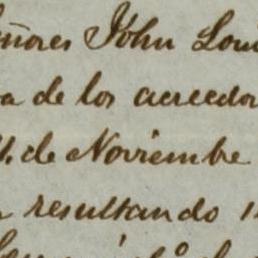 eñores John Loui
a de los acreedor
de Noviembre
resultando